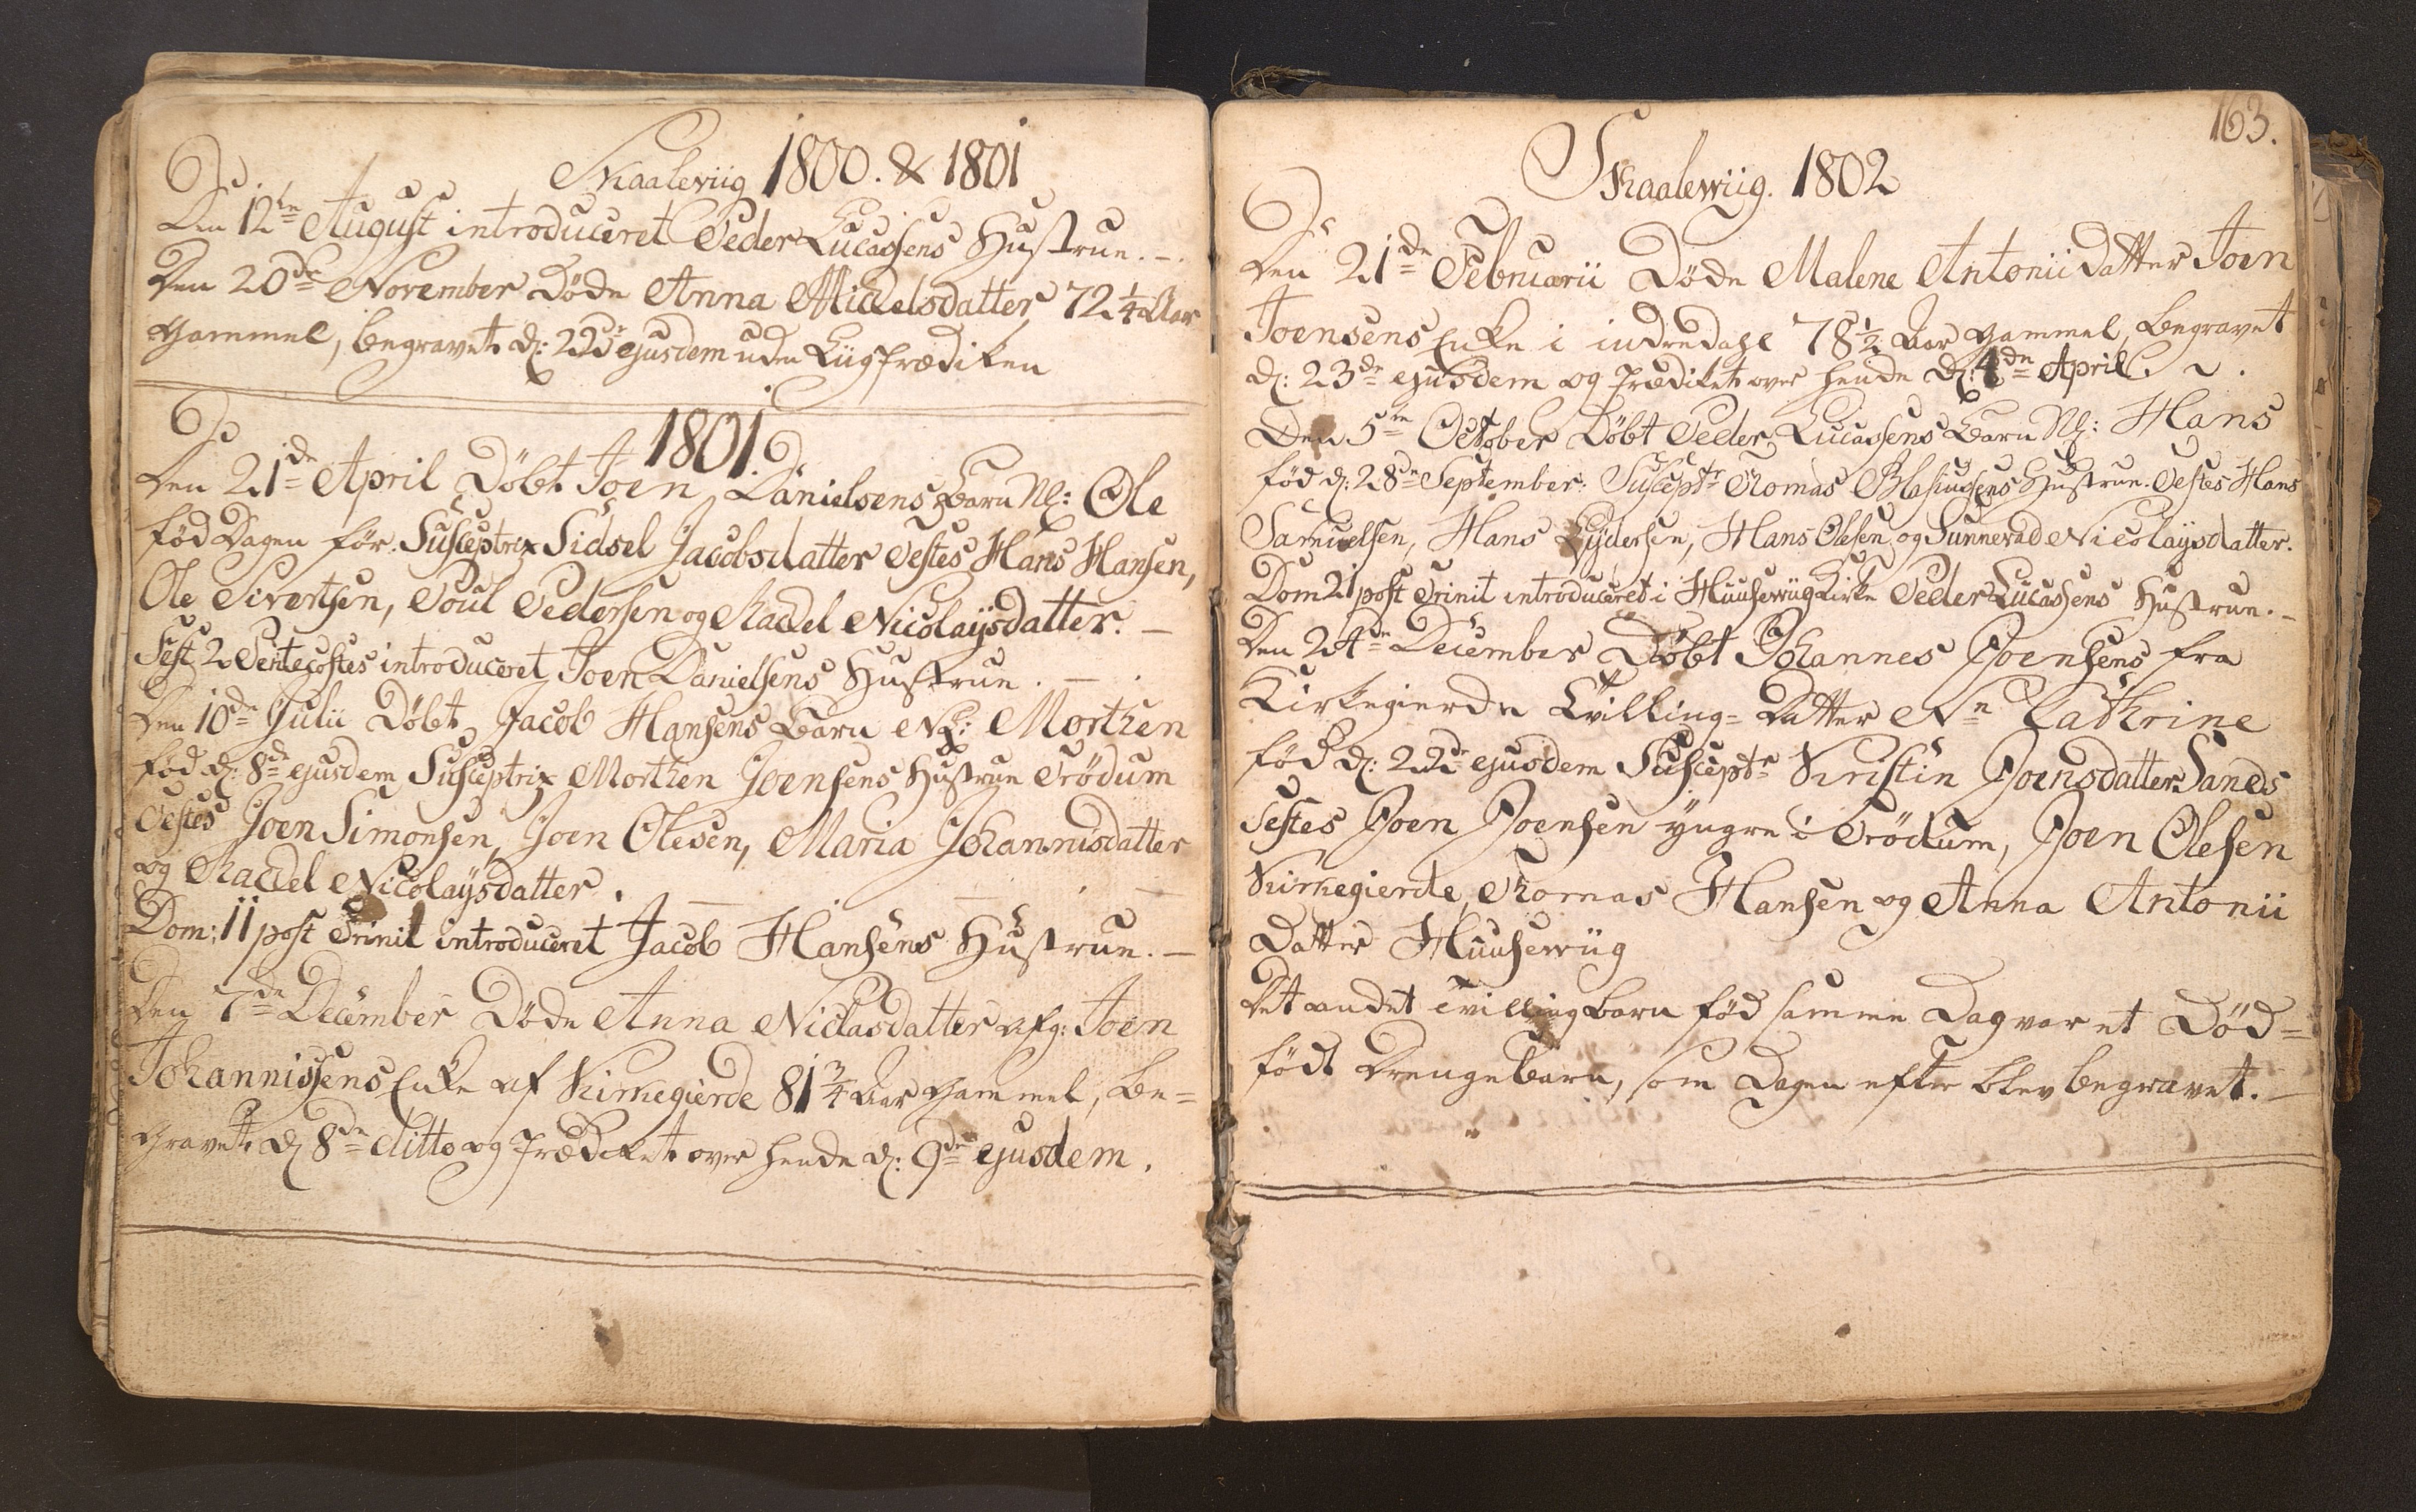 Skaaleviig 1800. & 1801
Den 12te August introduceret Peder Lucassens Hustrue. -
Den 20de November Døde Anna Mickelsdatter, 72 1/4 Aar
Gammel, begravet d: 22de ejusdem uden Liigprædiken
1801.
Den 21de April Døbt Joen Danielsens Barn Nl: Ole
fød Dagen før. Susceptrix Sidsel Jacobsdatter Testes Hans Hansen,
Ole Sivertsen, Poul Pedersen og Rackel Nicolaÿsdatter. -
Fest. 2 Pentecostes introduceret Joen Danielsens Hustrue. -
Den 10de Julii Døbt Jacob Hansens Barn Nl: Morthen
fød d: 8de ejusdem Susceptrix Morthen Joensens Hustrue Trödum
Testes Joen Simonsen, Joen Olesen, Maria Johannisdatter
og Rackel Nicolaÿsdatter.
Dom: 11 post Trinit introduceret Jacob Hansens Hustrue. -
Den 7de December Døde Anna Niclasdatter afg: Joen
Johannissens Enke af Kirkegierde 81 3/4 Aar Gammel, be=
gravet d 8de ditto og Prædiket over hende d: 9de ejusdem.
163.
Skaalewiig. 1802
Den 21de Februarii Døde Malene Antonii Datter Joen
Joensens Enke i indredahl 78 1/2 Aar Gammel, begravet
d: 23de ejusdem og Prædiket over hende d: 4de April.
Den 5te October Døbt Peder Lucassens Barn Nl: Hans
fød d: 28de September: Susceptr Tomas Blasiussens Hustrue. Testes Hans
Samuelsen, Hans Pedersen, Hans Olesen og Sunnevad Nicolaÿsdatter.
Dom 21 post Trinit introduceret i Huusewiig Kirke Peder Lucassens Hustrue. -
Den 24de December Døbt Johannes Joensens fra
Kirkegierde Tvilling= Datter Nn Cathrine
fød d: 22de ejusdem Susceptr Kristin Joensdatter Sands
Testes Joen Joensen yngre i Trödum, Joen Olesen
Kirkegierde, Tomas Hansen og Anna Antonii
Datter Huusewiig
Det andet Tvilling barn fød samme Dag var et Død=
født Drengebarn, som Dagen efter blev begravet. -